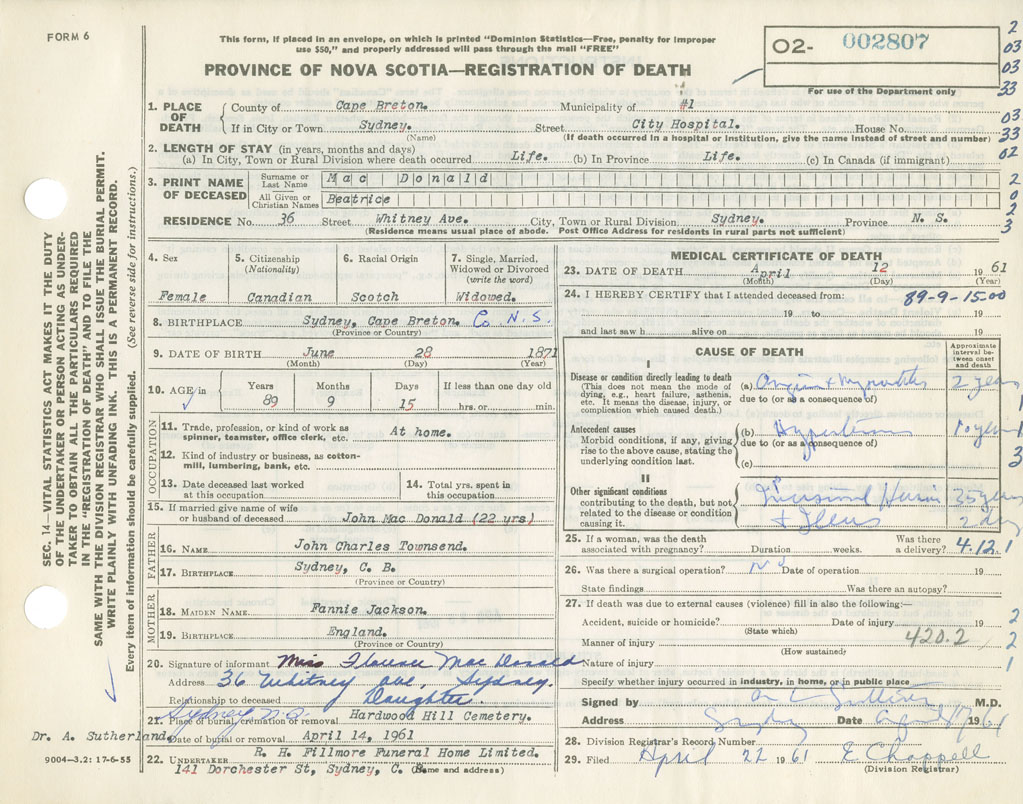 FORM 6
This form, if placed in an envelope, on which is printed "Dominion Statistics—Free, penalty for improper
use $50," and properly addressed will pass through the mail "FREE"
PROVINCE OF NOVA SCOTIA—REGISTRATION OF DEATH
02- 002807
For use of the Department only
2
03
03
33
03
33
02
2
0
2
3
SEC. 14—VITAL STATISTICS ACT MAKES IT THE DUTY
OF THE UNDERTAKER OR PERSON ACTING AS UNDER-
TAKER TO OBTAIN ALL THE PARTICULARS REQUIRED
IN THE "REGISTRATION OF DEATH" AND TO FILE THE
SAME WITH THE DIVISION REGISTRAR WHO SHALL ISSUE THE BURIAL PERMIT.
WRITE PLAINLY WITH UNFADING INK. THIS IS A PERMANENT RECORD.
Every item of information should be carefully supplied. (See reverse side for instructions.)
1. PLACE OF DEATH
County of Cape Breton. Municipality of #1
If in City or Town Sydney. Street City Hospital. House No.
(Name) (If death occurred in a hospital or institution, give the name instead of street and number)
2. LENGTH OF STAY (in years, months and days)
(a) In City, Town or Rural Division where death occurred Life. (b) In Province Life. (c) In Canada (if immigrant)
3. PRINT NAME OF DECEASED
Surname or Last Name Mac Donald
All Given or Christian Names Beatrice
RESIDENCE No. 36 Street Whitney Ave. City, Town or Rural Division Sydney. Province N. S.
(Residence means usual place of abode. Post Office Address for residents in rural parts not sufficient)
4. Sex
Female
5. Citizenship (Nationality)
Canadian
6. Racial Origin
Scotch
7. Single, Married, Widowed or Divorced (write the word)
Widowed.
8. BIRTHPLACE Sydney, Cape Breton. Co N.S.
(Province or Country)
9. DATE OF BIRTH June 28 1871
(Month) (Day) (Year)
10. AGE in
Years Months Days If less than one day old
89 9 15 hrs. or min.
OCCUPATION
11. Trade, profession, or kind of work as
spinner, teamster, office clerk, etc. At home.
12. Kind of industry or business, as cotton-
mill, lumbering, bank, etc.
13. Date deceased last worked
at this occupation
14. Total yrs. spent in
this occupation
15. If married give name of wife
or husband of deceased John Mac Donald (22 yrs)
FATHER
16. NAME John Charles Townsend.
17. BIRTHPLACE Sydney, C. B.
(Province or Country)
MOTHER
18. MAIDEN NAME Fannie Jackson.
19. BIRTHPLACE England.
(Province or Country)
20. Signature of informant Miss Florence Mac Donald
Address 36 Whitney Ave, Sydney.
Relationship to deceased Daughter.
Sydney N.S.
21. Place of burial, cremation or removal Hardwood Hill Cemetery.
Dr. A. Sutherland.
Date of burial or removal April 14, 1961
22. UNDERTAKER R. H. Fillmore Funeral Home Limited.
141 Dorchester St, Sydney, C. B.
(Name and address)
9004—3.2: 17-6-55
MEDICAL CERTIFICATE OF DEATH
23. DATE OF DEATH April 12 1961
(Month) (Day) (Year)
24. I HEREBY CERTIFY that I attended deceased from: 89-9-15.00
19 to 19
and last saw h alive on 19
CAUSE OF DEATH
Approximate interval between onset and death
I
Disease or condition directly leading to death
(This does not mean the mode of
dying, e.g., heart failure, asthenia,
etc. It means the disease, injury, or
complication which caused death.)
(a) Angina + 2 years
due to (or as a consequence of)
1
Antecedent causes
Morbid conditions, if any, giving
rise to the above cause, stating the
underlying condition last.
(b) Hypertension 10 years
due to (or as a consequence of)
(c)
1
3
II
Other significant conditions
contributing to the death, but not
related to the disease or condition
causing it.
Incisional Hernia 35 years
+ Ileus 2 day
25. If a woman, was the death
associated with pregnancy? Duration weeks. Was there a delivery? 4.12.1
26. Was there a surgical operation? Date of operation 19
State findings Was there an autopsy?
27. If death was due to external causes (violence) fill in also the following:—
Accident, suicide or homicide? Date of injury 19
(State which)
Manner of injury 420.2
(How sustained)
Nature of injury
2
2
1
Specify whether injury occurred in industry, in home, or in public place
Signed by M.D.
Address Sydney Date April 1961
28. Division Registrar's Record Number
29. Filed April 22 1961 E Chappell
(Division Registrar)